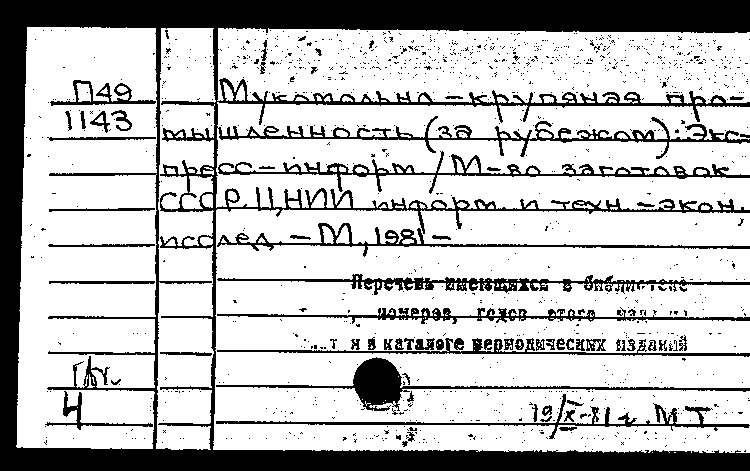 П49
1143
Мукомольно-крупяная про-
мышленность (за рубежом): Экс-
пресс-информ / М-во заготовок
СССР. ЦНИИ информ. и техн.-экон.
исслед. - М., 1981 -
Перечень имеющихся в библиотеке
, номеров, годов этого
и в каталоге периодических изданий
4
19/X-81 г. М Т.